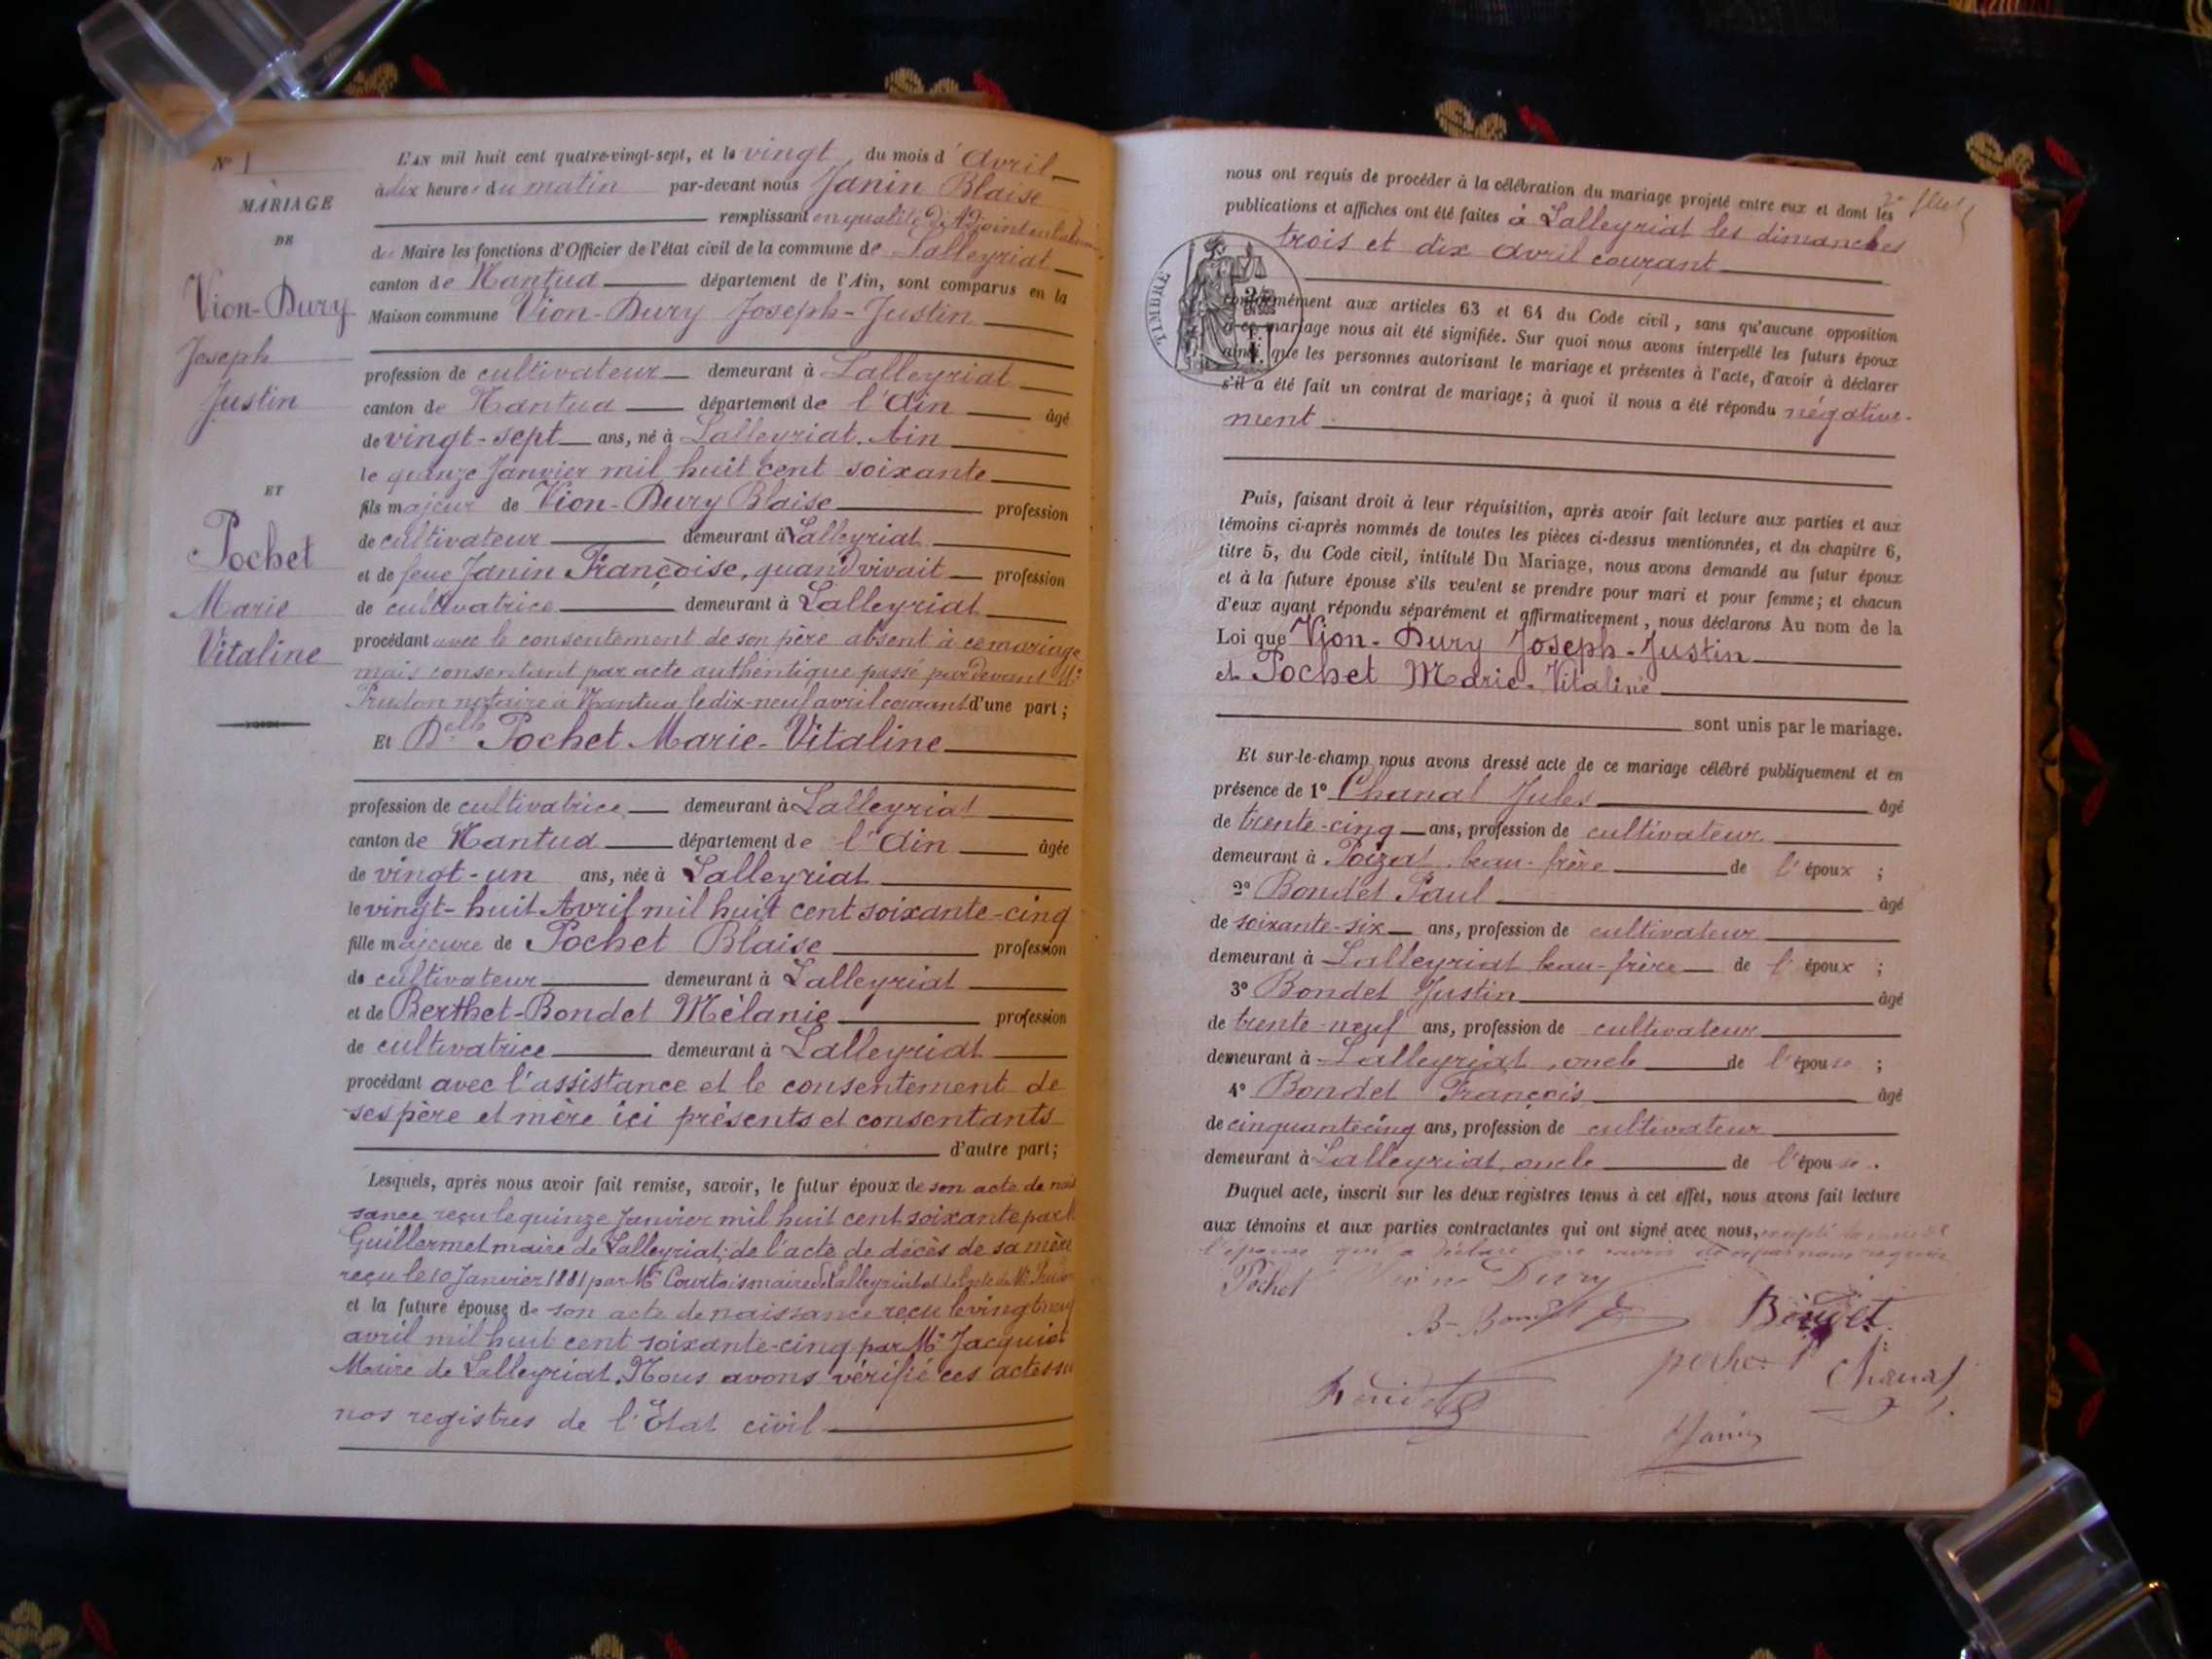 N° 1
MARIAGE
DE
Vion-Dury
Joseph
Justin
ET
Pochet
Marie
Vitaline
L'AN mil huit cent quatre-vingt-sept, et le vingt du mois d'Avril
à dix heures du matin par-devant nous Janin Blaise
remplissant en qualité d'Adjoint en
du Maire les fonctions d'Officier de l'état civil de la commune de Lalleyriat
canton de Nantua département de l'Ain, sont comparus en la
Maison commune Vion-Dury Joseph-Justin
profession de cultivateur demeurant à Lalleyriat
canton de Nantua département de l'Ain âgé
de vingt-sept ans, né à Lalleyriat. Ain
le quinze Janvier mil huit cent soixante
fils majeur de Vion-Dury Blaise profession
de cultivateur demeurant à Lalleyriat
et de feue Janin Françoise, quand vivait profession
de cultivatrice demeurant à Lalleyriat
procédant avec le consentement de son père absent à ce mariage
mais consentant par acte authentique passé par devant Me
Prudon notaire à Nantua le dix-neuf avril courant d'une part;
Et Delle Pochet Marie-Vitaline
profession de cultivatrice demeurant à Lalleyriat
canton de Nantua département de l'Ain âgée
de vingt-un ans, née à Lalleyriat
le vingt-huit Avril mil huit cent soixante-cinq
fille majeure de Pochet Blaise profession
de cultivateur demeurant à Lalleyriat
et de Berthet-Bondet Mélanie profession
de cultivatrice demeurant à Lalleyriat
procédant avec l'assistance et le consentement de
ses père et mère ici présents et consentants
d'autre part;
Lesquels, après nous avoir fait remise, savoir, le futur époux de son acte de nais
sance reçu le quinze Janvier mil huit cent soixante par M
Guillermet maire de Lalleyriat; de l'acte de décès de sa mère
reçu le 10 Janvier 1881 par Mr Courtois maire de Lalleyriat et de l'acte de Me Prudon
et la future épouse de son acte de naissance reçu le vingt neuf
avril mil huit cent soixante-cinq par Mr Jacquiot
Maire de Lalleyriat. Nous avons vérifié ces actes su
nos registres de l'Etat civil
nous ont requis de procéder à la célébration du mariage projeté entre eux et dont les
publications et affiches ont été faites à Lalleyriat les dimanches
trois et dix Avril courant
TIMBRE
conformément aux articles 63 et 64 du Code civil, sans qu'aucune opposition
à ce mariage nous ait été signifiée. Sur quoi nous avons interpellé les futurs époux
ainsi que les personnes autorisant le mariage et présentes à l'acte, d'avoir à déclarer
s'il a été fait un contrat de mariage; à quoi il nous a été répondu négative-
ment.
Puis, faisant droit à leur réquisition, après avoir fait lecture aux parties et aux
témoins ci-après nommés de toutes les pièces ci-dessus mentionnées, et du chapitre 6,
titre 5, du Code civil, intitulé Du Mariage, nous avons demandé au futur époux
et à la future épouse s'ils veulent se prendre pour mari et pour femme; et chacun
d'eux ayant répondu séparément et affirmativement, nous déclarons Au nom de la
Loi que Vion-Dury Joseph-Justin
et Pochet Marie-Vitaline
sont unis par le mariage.
Et sur-le-champ nous avons dressé acte de ce mariage célébré publiquement et en
présence de 1° Chanal Jules âgé
de trente-cinq ans, profession de cultivateur
demeurant à Poizat, beau-frère de l'époux ;
2° Bondet Paul âgé
de soixante-six ans, profession de cultivateur
demeurant à Lalleyriat beau-frère de l'époux ;
3° Bondet Justin âgé
de trente-neuf ans, profession de cultivateur
demeurant à Lalleyriat, oncle de l'épouse ;
4° Bondet François âgé
de cinquante cinq ans, profession de cultivateur
demeurant à Lalleyriat, oncle de l'épouse.
Duquel acte, inscrit sur les deux registres tenus à cet effet, nous avons fait lecture
aux témoins et aux parties contractantes qui ont signé avec nous, excepté la mère de
l'épouse qui a déclaré ne savoir de ce par nous requise
Pochet Vion Dury
B-Bondet Bondet
pochet Chanal
Bondet
Janin